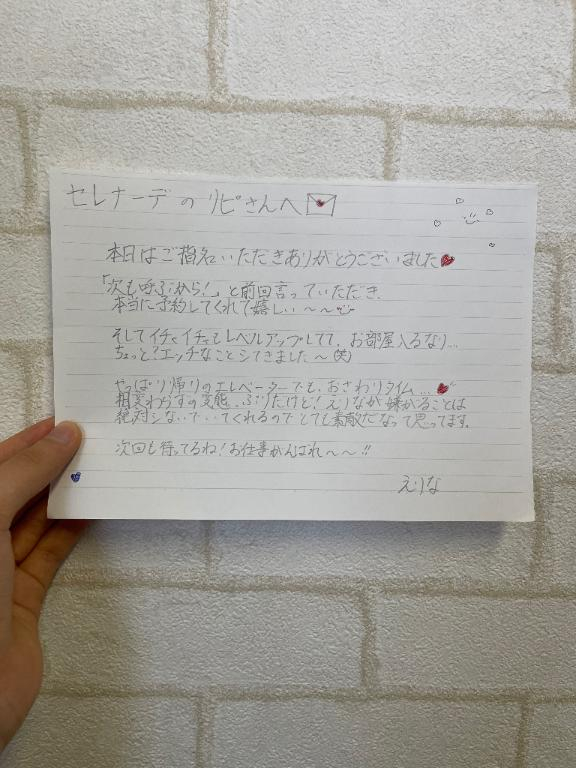 セレナーデのリピさんへ
本日はご指名いただきありがとうございました
「次も呼ぶから!」と前回言っていただき、
本当に予約してくれて嬉しい〜〜
そしてイチャイチャもレベルアップしてて、お部屋入るなり...
ちょっと?エッチなことシてきました〜(笑)
やっぱり帰りのエレベーターでも、おさわりタイム...
相変わらずの変態、ぶりだけど!えりなが嫌がることは
絶対シない...で...てくれるのでとても素敵だなって思ってます。
次回も待ってるね!お仕事がんばれ〜〜!!
えりな